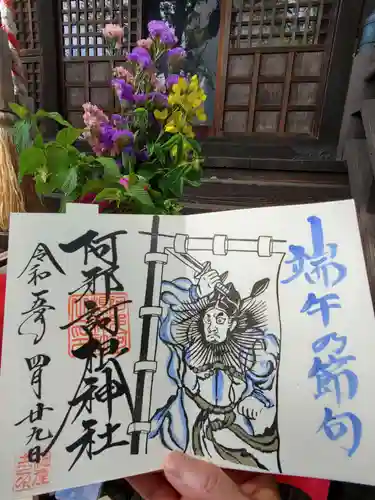 端午の節句
阿邪訶根神社
令和二年 四月廿九日